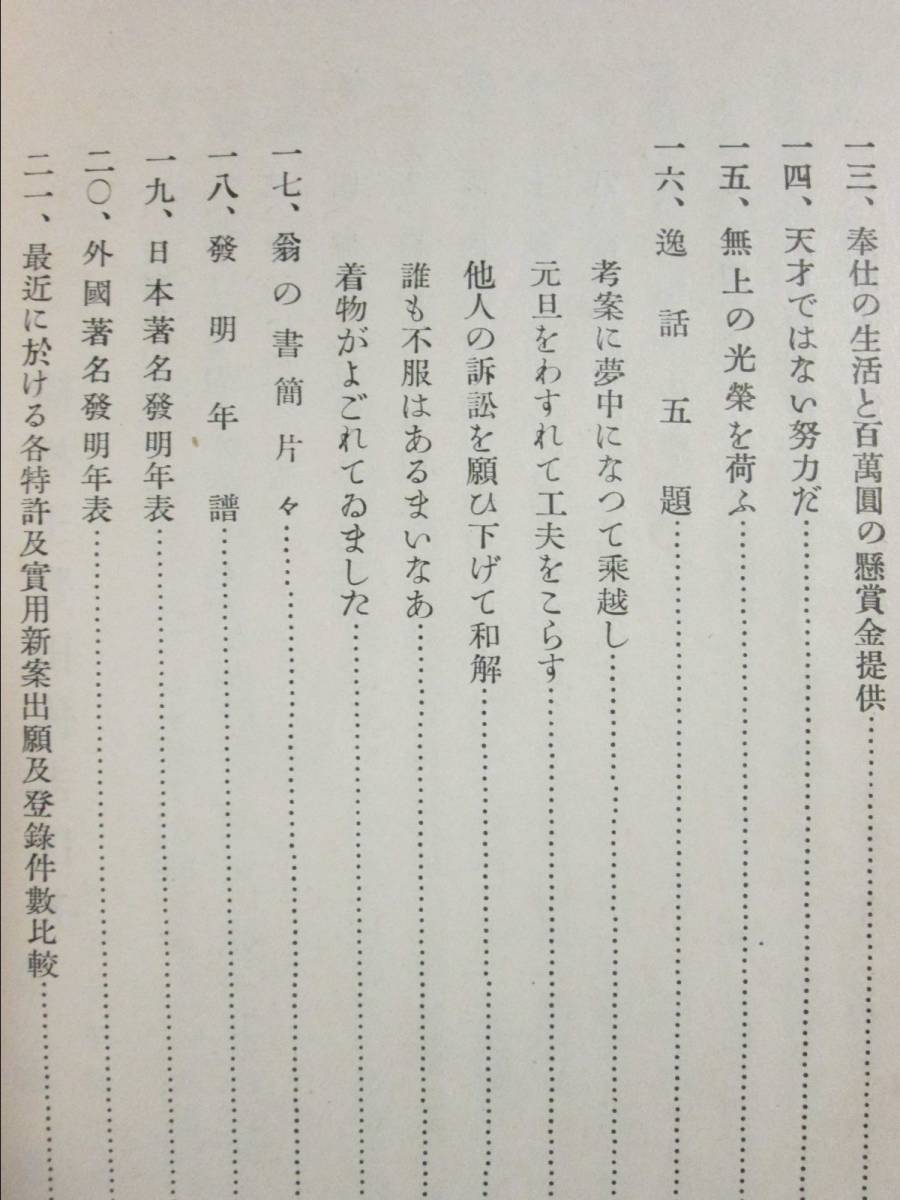 一三、奉仕の生活と百萬圓の懸賞金提供
一四、天才ではない努力だ
一五、無上の光榮を荷ふ
一六、逸話五題
考案に夢中になつて乘越し
元旦をわすれて工夫をこらす
他人の訴訟を願ひ下げて和解
誰も不服はあるまいなあ
着物がよごれてゐました
一七、翁の書簡片々
一八、發明年譜
一九、日本著名發明年表
二〇、外國著名發明年表
二一、最近に於ける各特許及實用新案出願及登錄件數比較